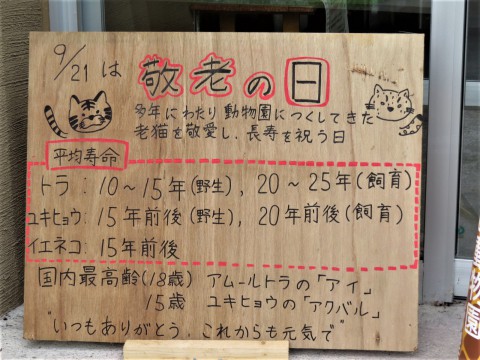 9/21は 敬老の日
多年にわたり動物園につくしてきた
老猫を敬愛し、長寿を祝う日
平均寿命
トラ：10～15年(野生)，20～25年(飼育)
ユキヒョウ：15年前後(野生)，20年前後(飼育)
イエネコ：15年前後
国内最高齢(18歳) アムールトラの「アイ」
15歳 ユキヒョウの「アクバル」
"いつもありがとう．これからも元気で"